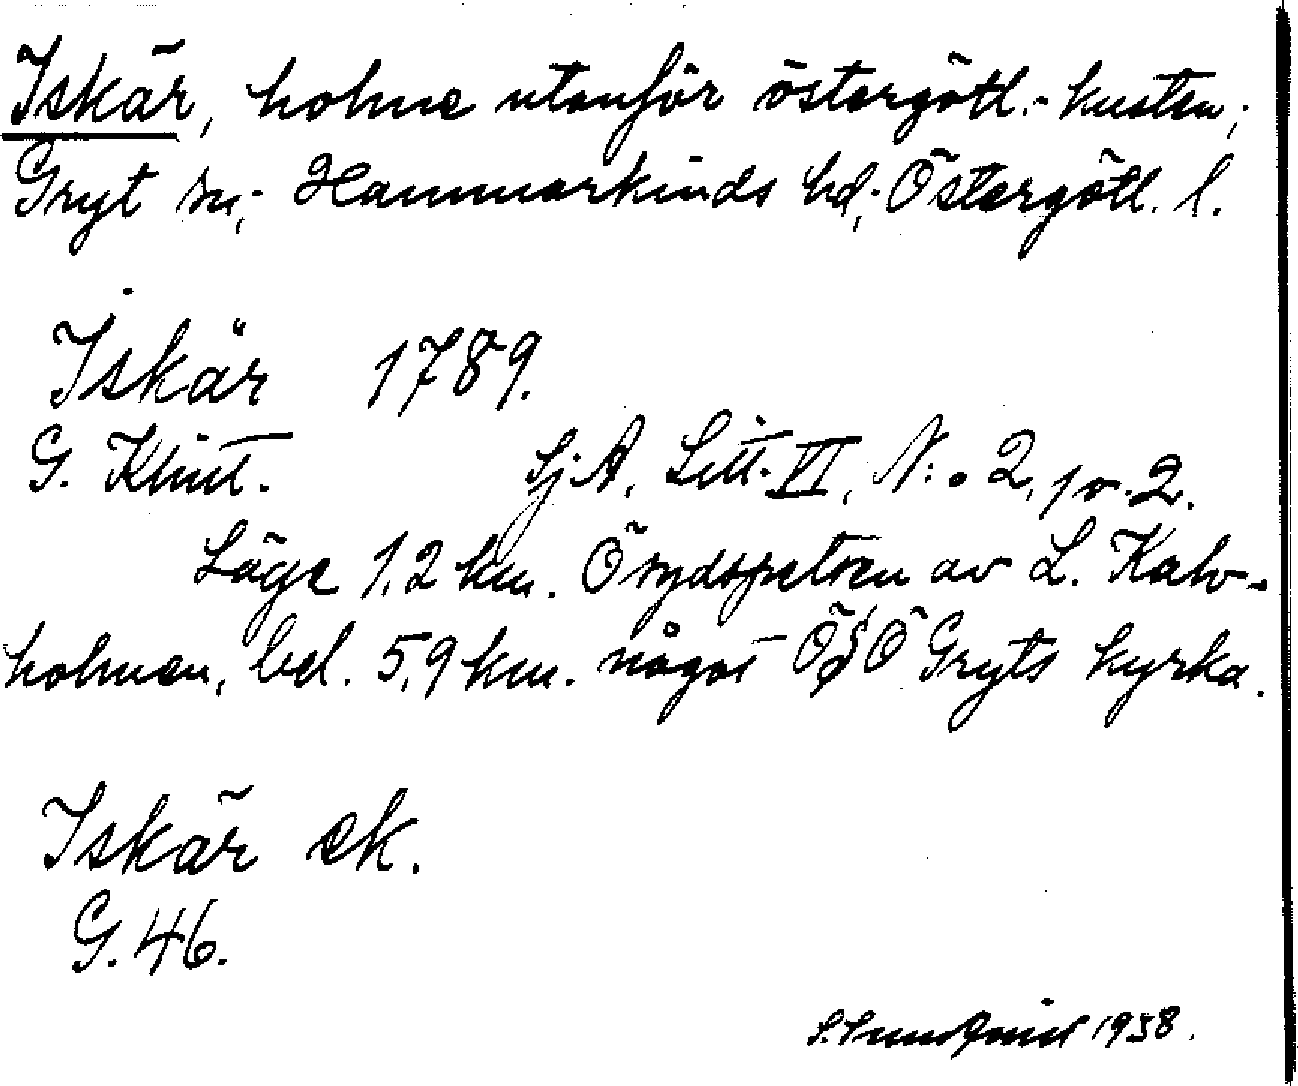 Iskär, holme utanför östergötl.-kusten;
Gryt sn; Hammarkinds hd; Östergötl. l.
Iskär 1789.
G. Klint. SjA, Litt. VI, N:o 2, 1 o. 2.
Läge 1,2 km. Ö sydspetsen av L. Kalv-
holmen, bel. 5,9 km. något ÖSÖ Gryts kyrka.
Iskär ek.
G. 46.
S. Sundqvist 1938.